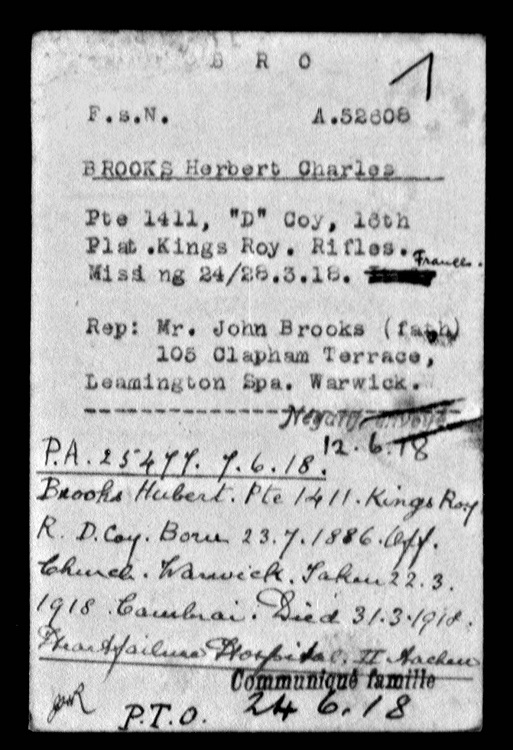 B R O
1
F.s.N. A.52608
BROOKS Herbert Charles
Pte 1411, "D" Coy, 16th
Plat.Kings Roy. Rifles.
Missi ng 24/28.3.18. France.
Rep: Mr. John Brooks (fath)
105 Clapham Terrace,
Leamington Spa. Warwick.
Négatif envoyé
12.6.18
P.A. 25477. 7.6.18.
Brooks Hubert. Pte 1411. Kings Roy
R. D.Coy. Born 23.7.1886. Off.
Church. Warwick. Taken 22.3.
1918 Cambrai. Died 31.3.1918.
Heartfailure Hospital. II Aachen
Communiqué famille
24 6.18
P.T.O.